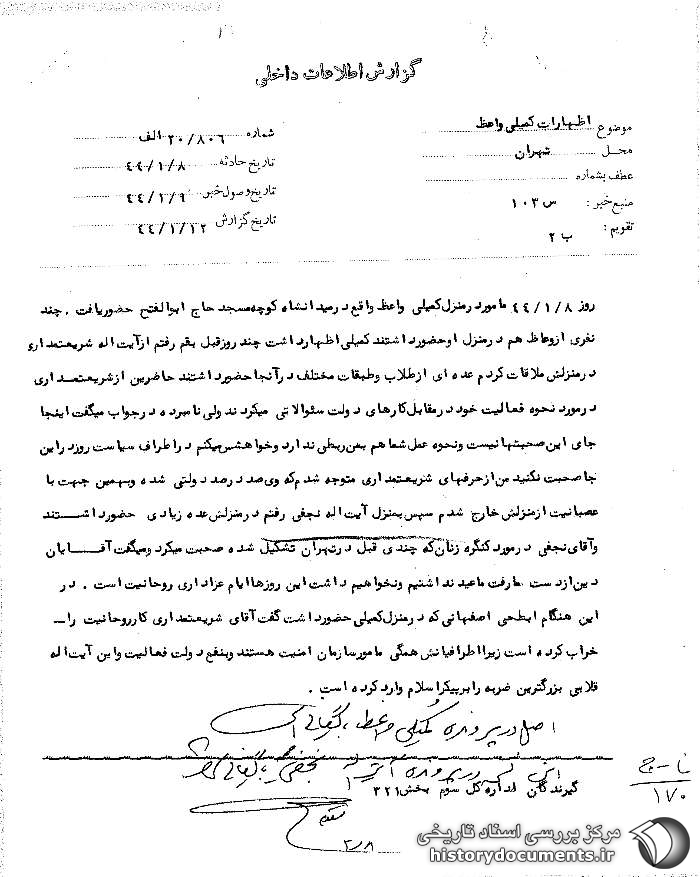 گزارش اطلاعات داخلی
موضوع اظهارات کمیلی واعظ
محل شهران
عطف بشماره
منبع خبر : س ۱۰۳
تقویم : ب ۲
شماره ۲۰/۸۰۶ الف
تاریخ حادثه ۴۴/۱/۸
تاریخ وصول خبر ۴۴/۱/۹
تاریخ گزارش ۴۴/۱/۱۲
روز ۴۴/۱/۸ مامور در منزل کمیلی واعظ واقع در میدانشاه کوچه مسجد حاج ابوالفتح حضور یافت . چند
نفری از وعاظ هم در منزل او حضور داشتند کمیلی اظهار داشت چند روز قبل بقم رفتم از آیت اله شریعتمداری
در منزلش ملاقات کردم عده ای از طلاب و طبقات مختلف در آنجا حضور داشتند حاضرین از شریعتمداری
در مورد نحوه فعالیت خود در مقابل کارهای دولت سئوالاتی میکردند ولی نامبرده در جواب میگفت اینجا
جای این صحبتها نیست و نحوه عمل شما هم بمن ربطی ندارد و خواهش میکنم در اطراف سیاست روز در این
جا صحبت نکنید من از حرفهای شریعتمداری متوجه شدم که وی صد در صد دولتی شده و بهمین جهت با
عصبانیت از منزلش خارج شدم سپس بمنزل آیت اله نجفی رفتم در منزلش عده زیادی حضور داشتند
و آقای نجفی در مورد کنگره زنان که چندی قبل در تهران تشکیل شده صحبت میکرد و میگفت آقایان
دین از دست ما رفت ما عید نداشتیم و نخواهیم داشت این روزها ایام عزاداری روحانیت است . در
این هنگام ابطحی اصفهانی که در منزل کمیلی حضور داشت گفت آقای شریعتمداری کار روحانیت را
خراب کرده است زیرا اطرافیانش همگی مامور سازمان امنیت هستند و بنفع دولت فعالیت و این آیت اله
قلابی بزرگترین ضربه را بر پیکر اسلام وارد کرده است .
اصل در پرونده کمیلی واعظ بایگانی
در پرونده نجفی
گیرندگان اداره کل سوم بخش ۳۲۱
۱۷۰
۲/۸
مرکز بررسی اسناد تاریخی
historydocuments.ir